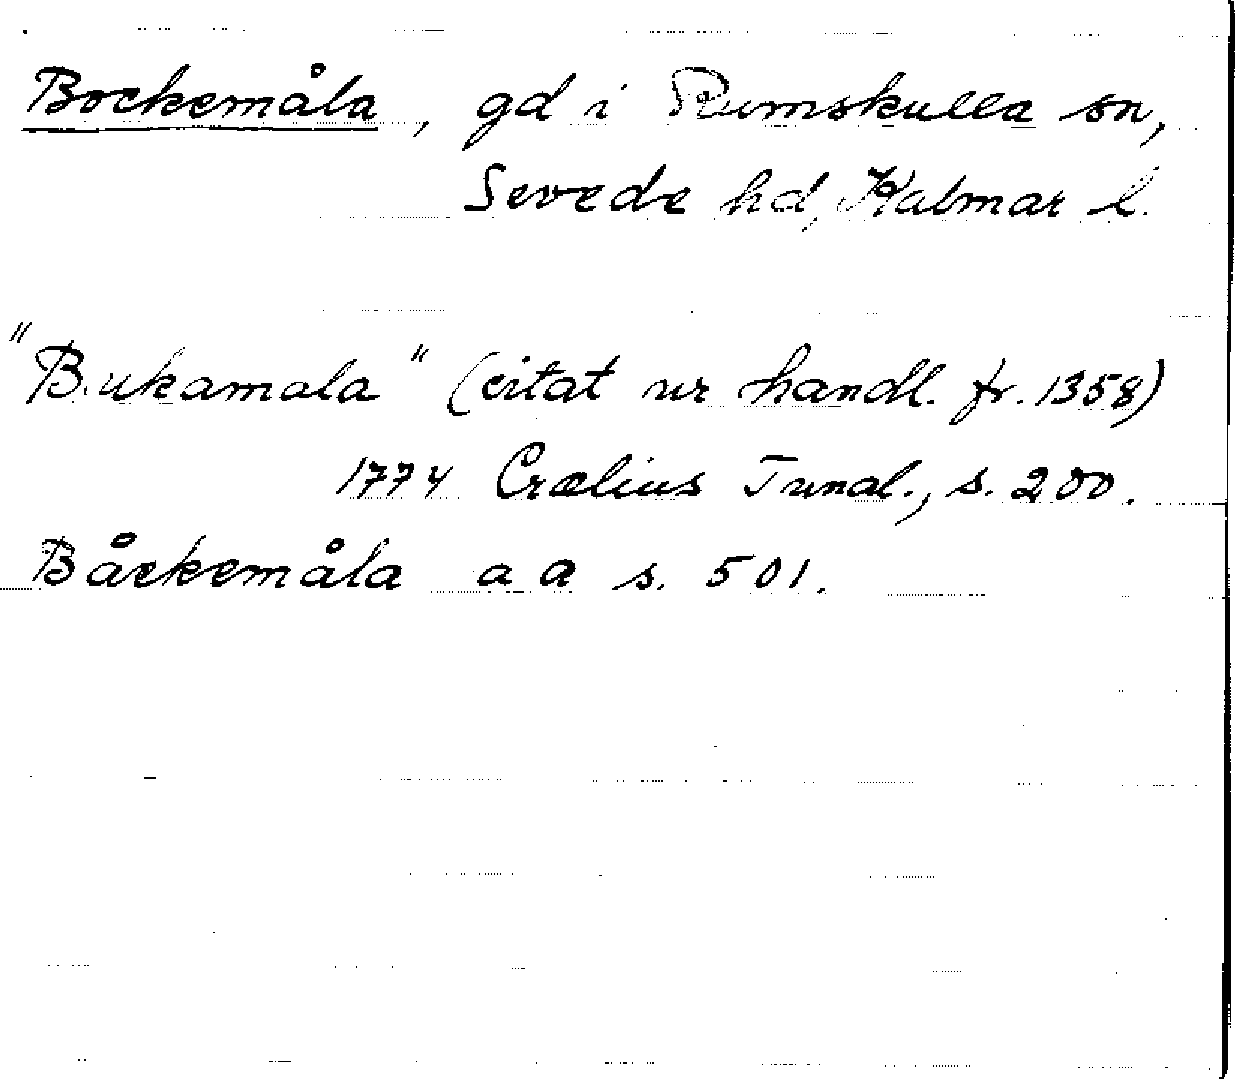 Bockemåla, gd i Rumskulla sn,
Sevede hd, Kalmar l.
"Bukamala" (citat ur handl. fr. 1358)
1774 Crælius Tunal., s. 200.
Båckemåla a a s. 501.